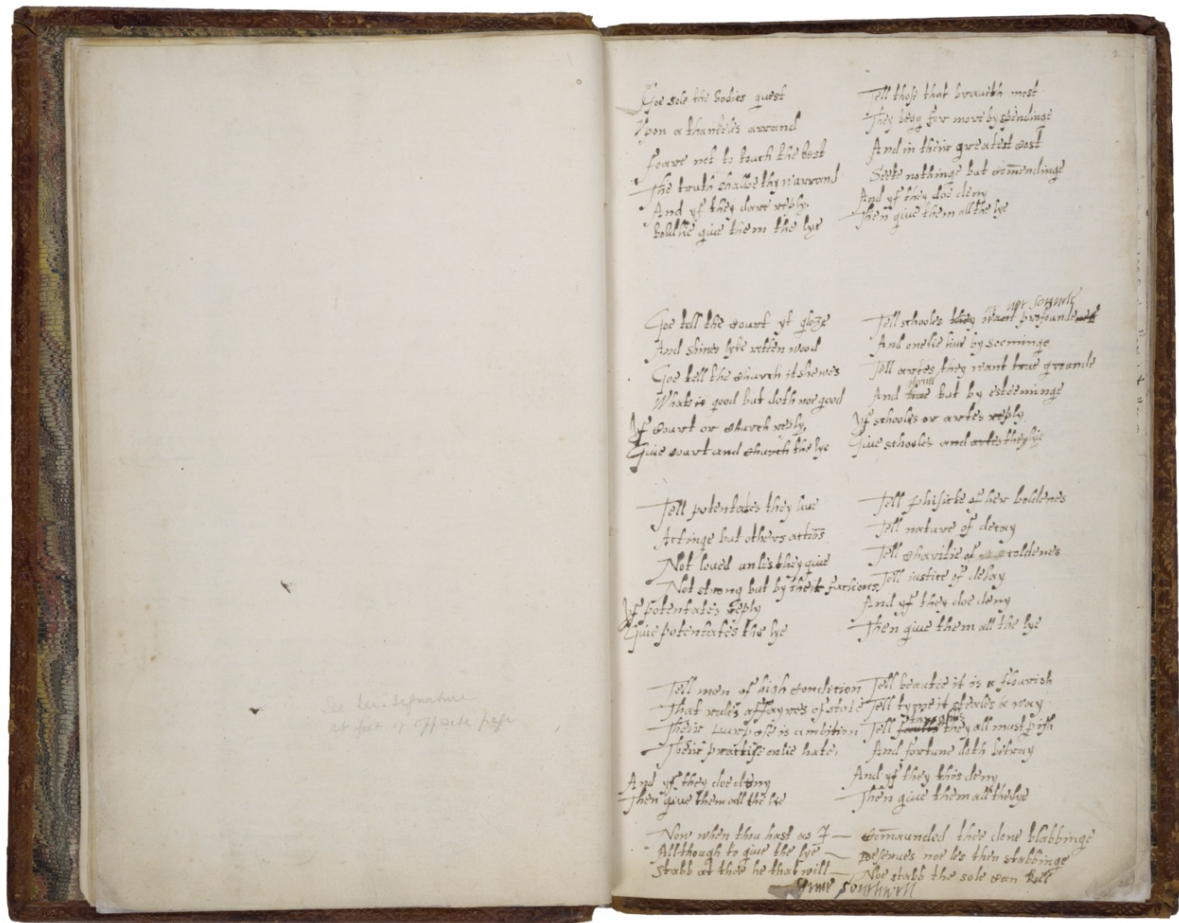 See her signature
at foot of opposite page
2
Goe sole the bodies guest
Upon a thankeles arrand
Feare not to touch the best
The truth shalbe thy warrand
And yf they dare reply
boldlie giue them the lye
Goe tell the Court yt
And shines lyke rotten wood
Goe tell the Church it shewes
What is good but doth noe good
Yf Court or Church reply,
Giue Court and Church the lye
Tell potentates they liue
Actinge but others actiōs
Not loued unles they giue
Not strong but by their factions,
Yf potentates reply
Giue potentates the lye
Tell men of high Condition
That rules affayres of state
Their purpose is ambition
Their practise onlie hate,
And yf they doe deny
Then giue them all the lye
Tell those that braueth most
They begg for more by spendinge
And in their greatest Cost
Seeke nothinge but Cōmendinge
And yf they doe deny
Then giue them all the lye
Tell schooles they want profoundnes
And onelie liue by seeminge
Tell artes they want true grounde
And but by esteeminge
Yf schooles or artes reply
Giue schooles and artes the lye
Tell phisicke of her boldenes
Tell nature of decay
Tell Charitie of coldenes
Tell iustice of delay
And yf they doe deny
Then giue them all the lye
Tell beautie it is a flourish
Tell tyme it steales away
Tell they all must
And fortune doth betray
And yf they this deny
Then giue them all the lye
Now when thou hast as I — Cōmaunded thee done blabbinge
Allthough to giue the lye — deserues noe les then stabbinge
Stabb at thee he that will — Noe stabb the sole Can kill
Anne Southwell